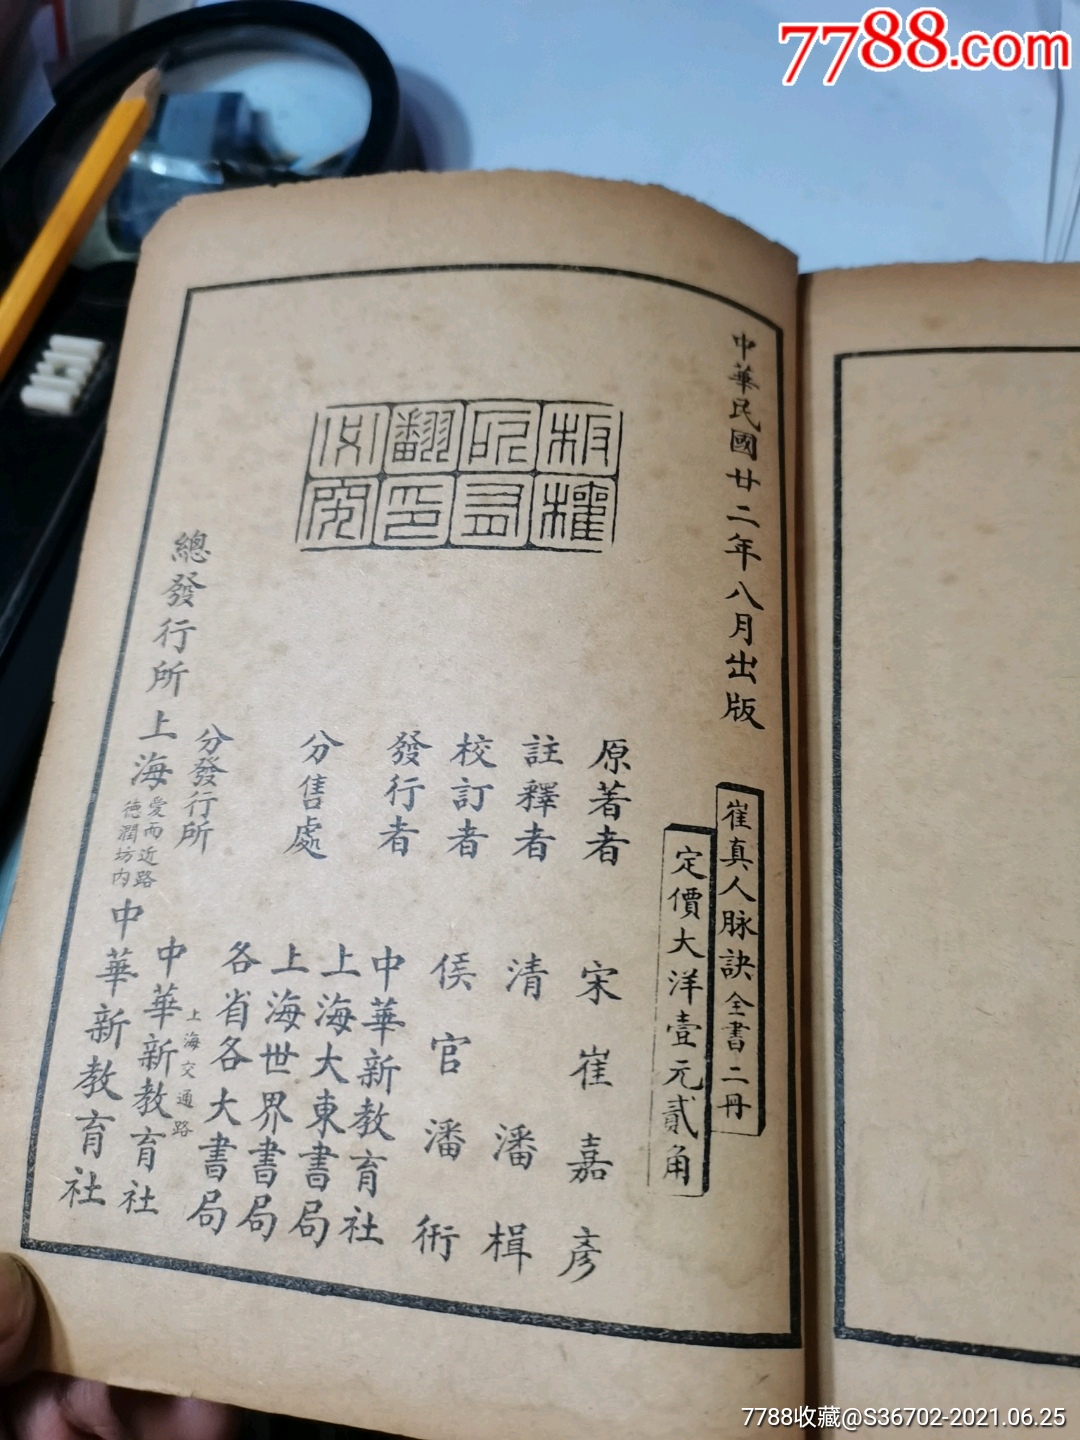 7788.com
中華民國廿二年八月出版
崔真人脉訣全書二冊
定價大洋壹元貳角
版權所有翻印必究
原著者 宋崔嘉彥
註釋者 清潘楫
校訂者 侯官潘術
發行者 中華新教育社
分售處 上海大東書局
上海世界書局
各省各大書局
分發行所 上海交通路 中華新教育社
總發行所 上海愛而近路德潤坊内 中華新教育社
7788收藏@S36702-2021.06.25